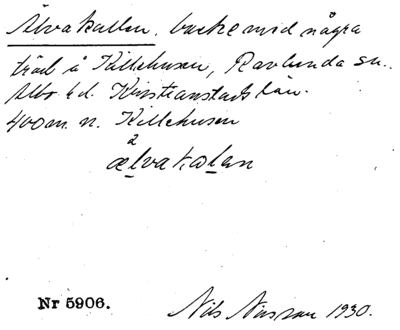 Älvakullen, backe vid några
träd i Killehusen, Ravlunda sn.
Albo hd. Kristianstads län.
400 m. n. Killehusen
2
ælvakalan
Nr 5906.
Nils Nilsson 1930.